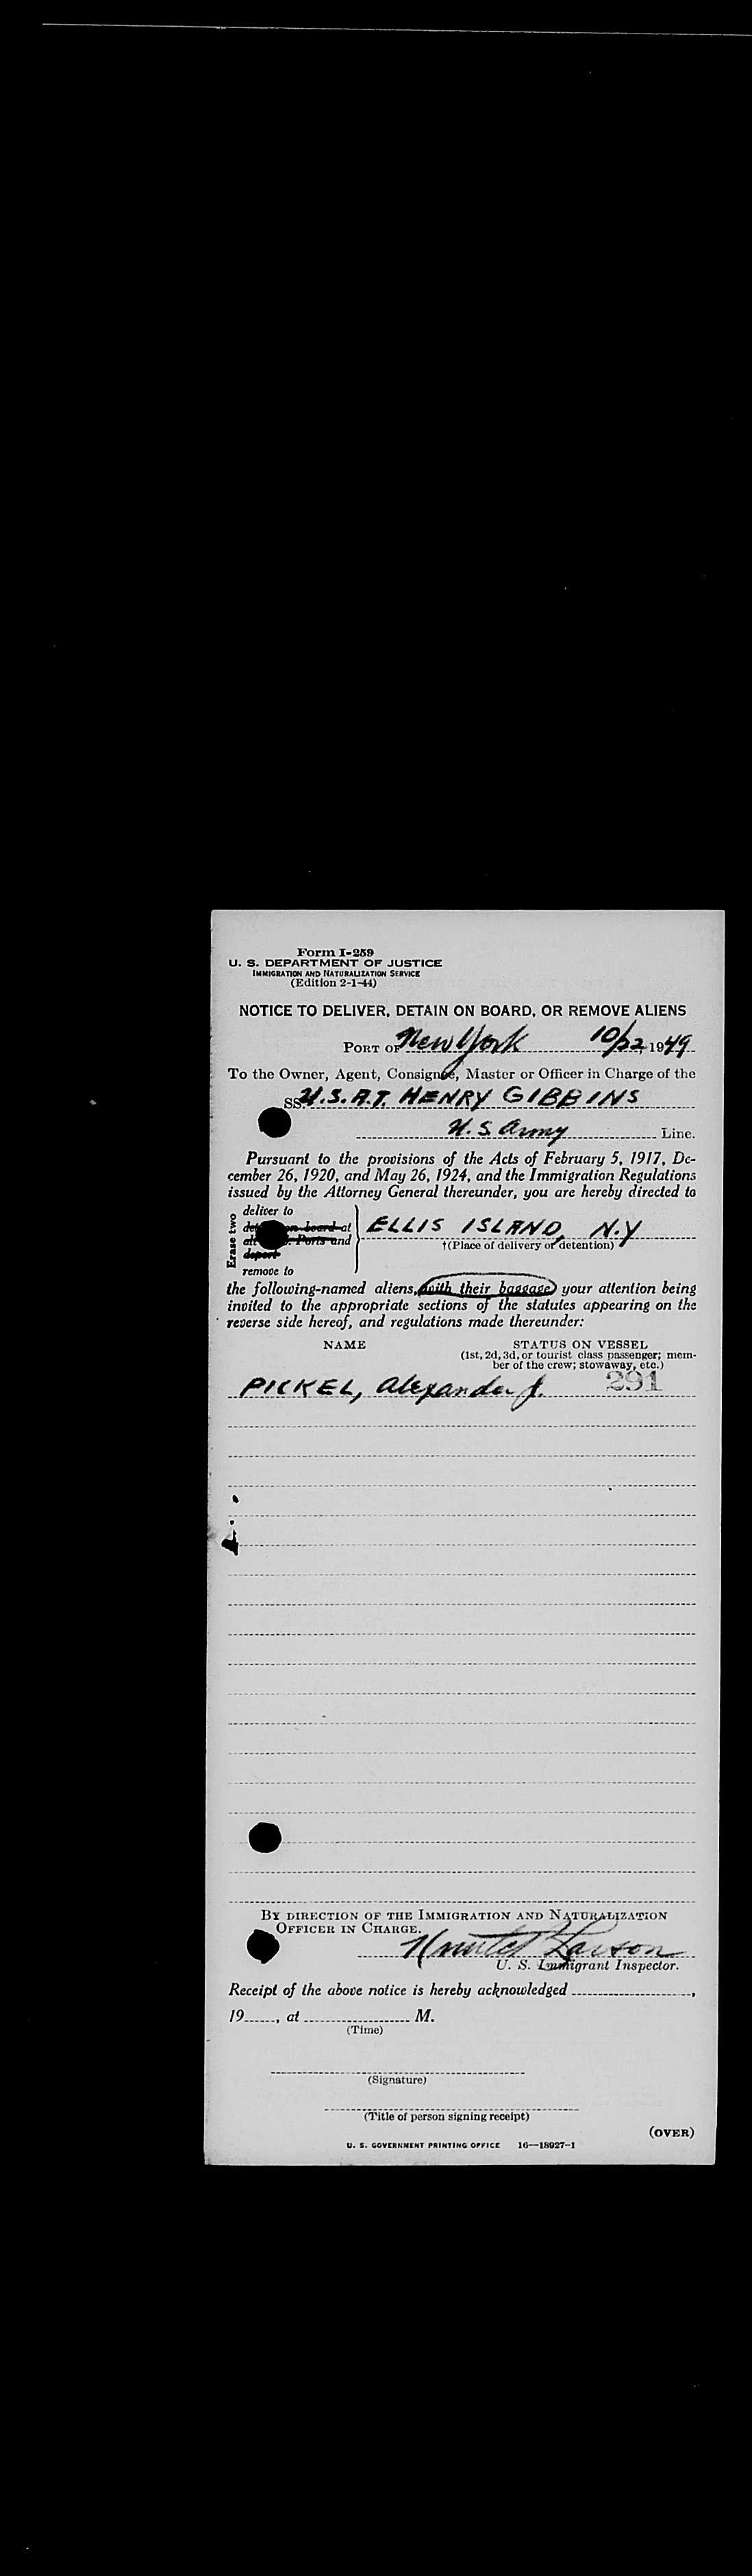 Form I-259
U. S. DEPARTMENT OF JUSTICE
IMMIGRATION AND NATURALIZATION SERVICE
(Edition 2-1-44)
NOTICE TO DELIVER, DETAIN ON BOARD, OR REMOVE ALIENS
PORT OF New York 10/22, 1949
To the Owner, Agent, Consignee, Master or Officer in Charge of the
SS U.S.A.T. HENRY GIBBINS
U.S. Army Line.
Pursuant to the provisions of the Acts of February 5, 1917, De-
cember 26, 1920, and May 26, 1924, and the Immigration Regulations
issued by the Attorney General thereunder, you are hereby directed to
Erase two
deliver to
on board at
Ports and
deport
remove to
ELLIS ISLAND, N.Y
†(Place of delivery or detention)
the following-named aliens, with their baggage, your attention being
invited to the appropriate sections of the statutes appearing on the
reverse side hereof, and regulations made thereunder:
NAME STATUS ON VESSEL
(1st, 2d, 3d, or tourist class passenger; mem-
ber of the crew; stowaway, etc.)
PICKEL, Alexander J. 291
BY DIRECTION OF THE IMMIGRATION AND NATURALIZATION
OFFICER IN CHARGE.
Larson
U. S. Immigrant Inspector.
Receipt of the above notice is hereby acknowledged ,
19 , at M.
(Time)
(Signature)
(Title of person signing receipt)
(OVER)
U. S. GOVERNMENT PRINTING OFFICE 16—18927-1